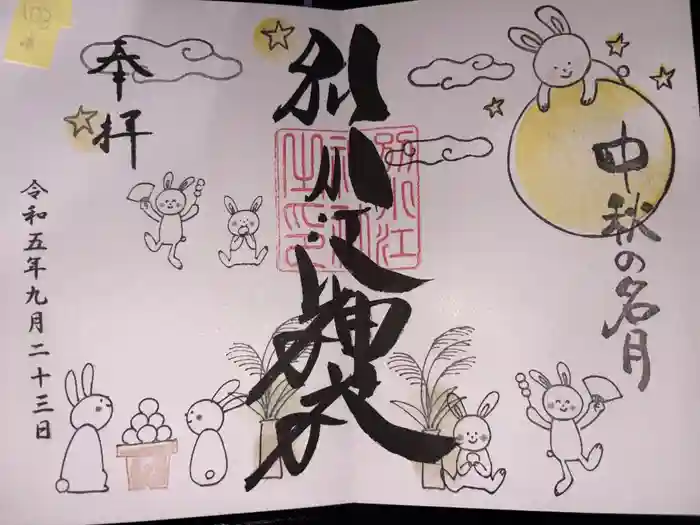 中秋の名月
別小江神社
別小江
神社
之印
奉拝
令和五年九月二十三日